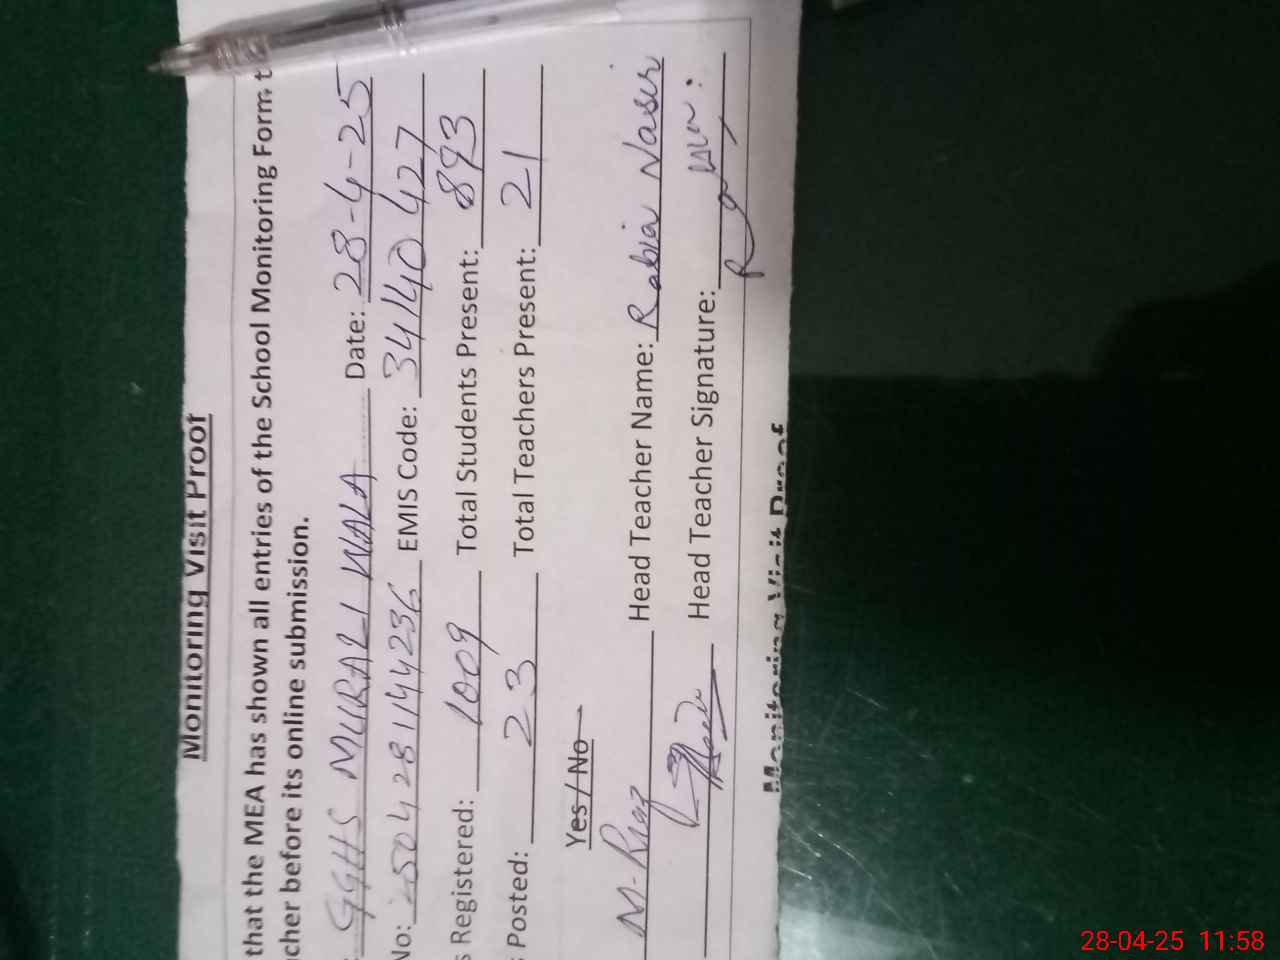 Monitoring Visit Proof
that the MEA has shown all entries of the School Monitoring Form t
cher before its online submission.
GGHS MURALI WALA Date: 28-4-25
No: 250428114236 EMIS Code: 34140427
s Registered: 1009 Total Students Present: 893
s Posted: 23 Total Teachers Present: 21
Yes / No
M-Riaz Head Teacher Name: Rabia Nasir
Head Teacher Signature:
Monitoring Visit Proof
28-04-25 11:58